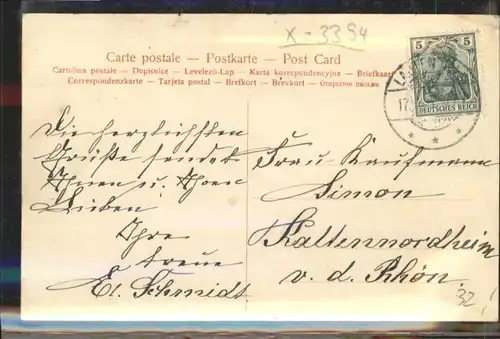 X-3394
Carte postale — Postkarte — Post Card
Cartolina postale — Dopisnice — Levelező-Lap — Karta korespondencyjna — Briefkaart
Correspondenzkarte — Tarjeta postal — Brefkort — Brevkort —
5 5
DEUTSCHES REICH
17.
Die herzlichsten
Grüße sendet
Ihnen u. Ihren
Lieben
Ihre
treue
El. Schmidt
Frau Kaufmann
Simon
Kaltennordheim
v. d. Rhön.
32